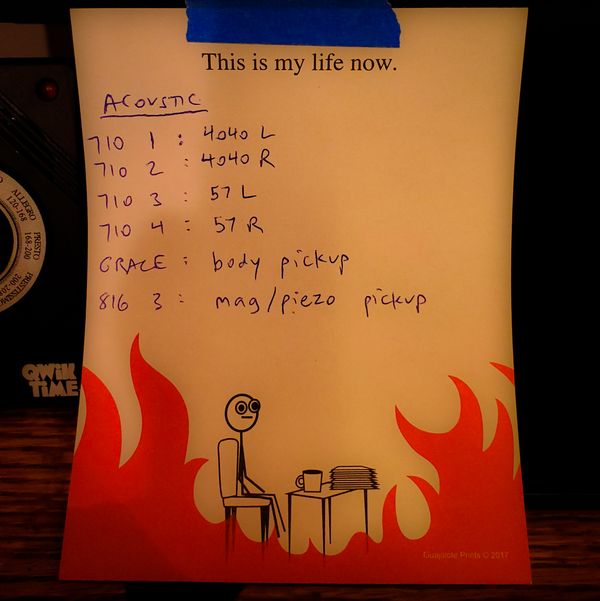 This is my life now.
ACOUSTIC
710 1 : 4040 L
710 2 : 4040 R
710 3 : 57 L
710 4 : 57 R
GRACE : body pickup
816 3 : mag/piezo pickup
ALLEGRO
120-168
PRESTO
168-200
PRESTISSIMO
QWiK
TiME
Guajolote Prints © 2017